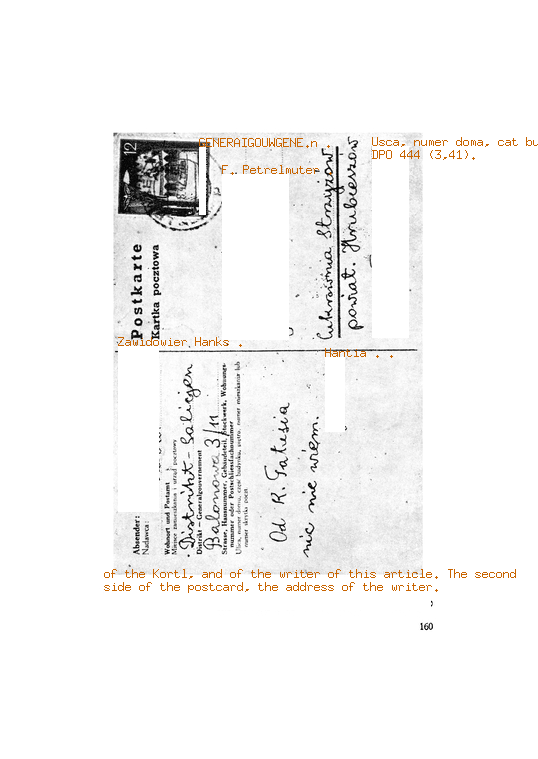 GENERAIGOUWGENE.n .
Usca, numer doma, cat bu
DPO 444 (3,41).
F. Petrelmuter
12
Postkarte
Kartka pocztowa
Cukrownia Strzyżów
powiat. Hrubieszów
Zawidowier Hanks .
Hantia . .
Absender:
Nadawca:
Wohnort und Postamt
Miejsce zamieszkania i urząd pocztowy
Distrikt - Galizien
Distrikt – Generalgouvernement
Balonowa 3/11
Strasse, Hausnummer, Gebäudeteil, Stockwerk, Wohnungs-
nummer oder Postschliessfachnummer
Ulica, numer domu, część budynku, piętro, numer mieszkania lub
numer skrytki poczt.
Od R.
nic nie wiem.
of the Kortl, and of the writer of this article. The second
side of the postcard, the address of the writer.
160